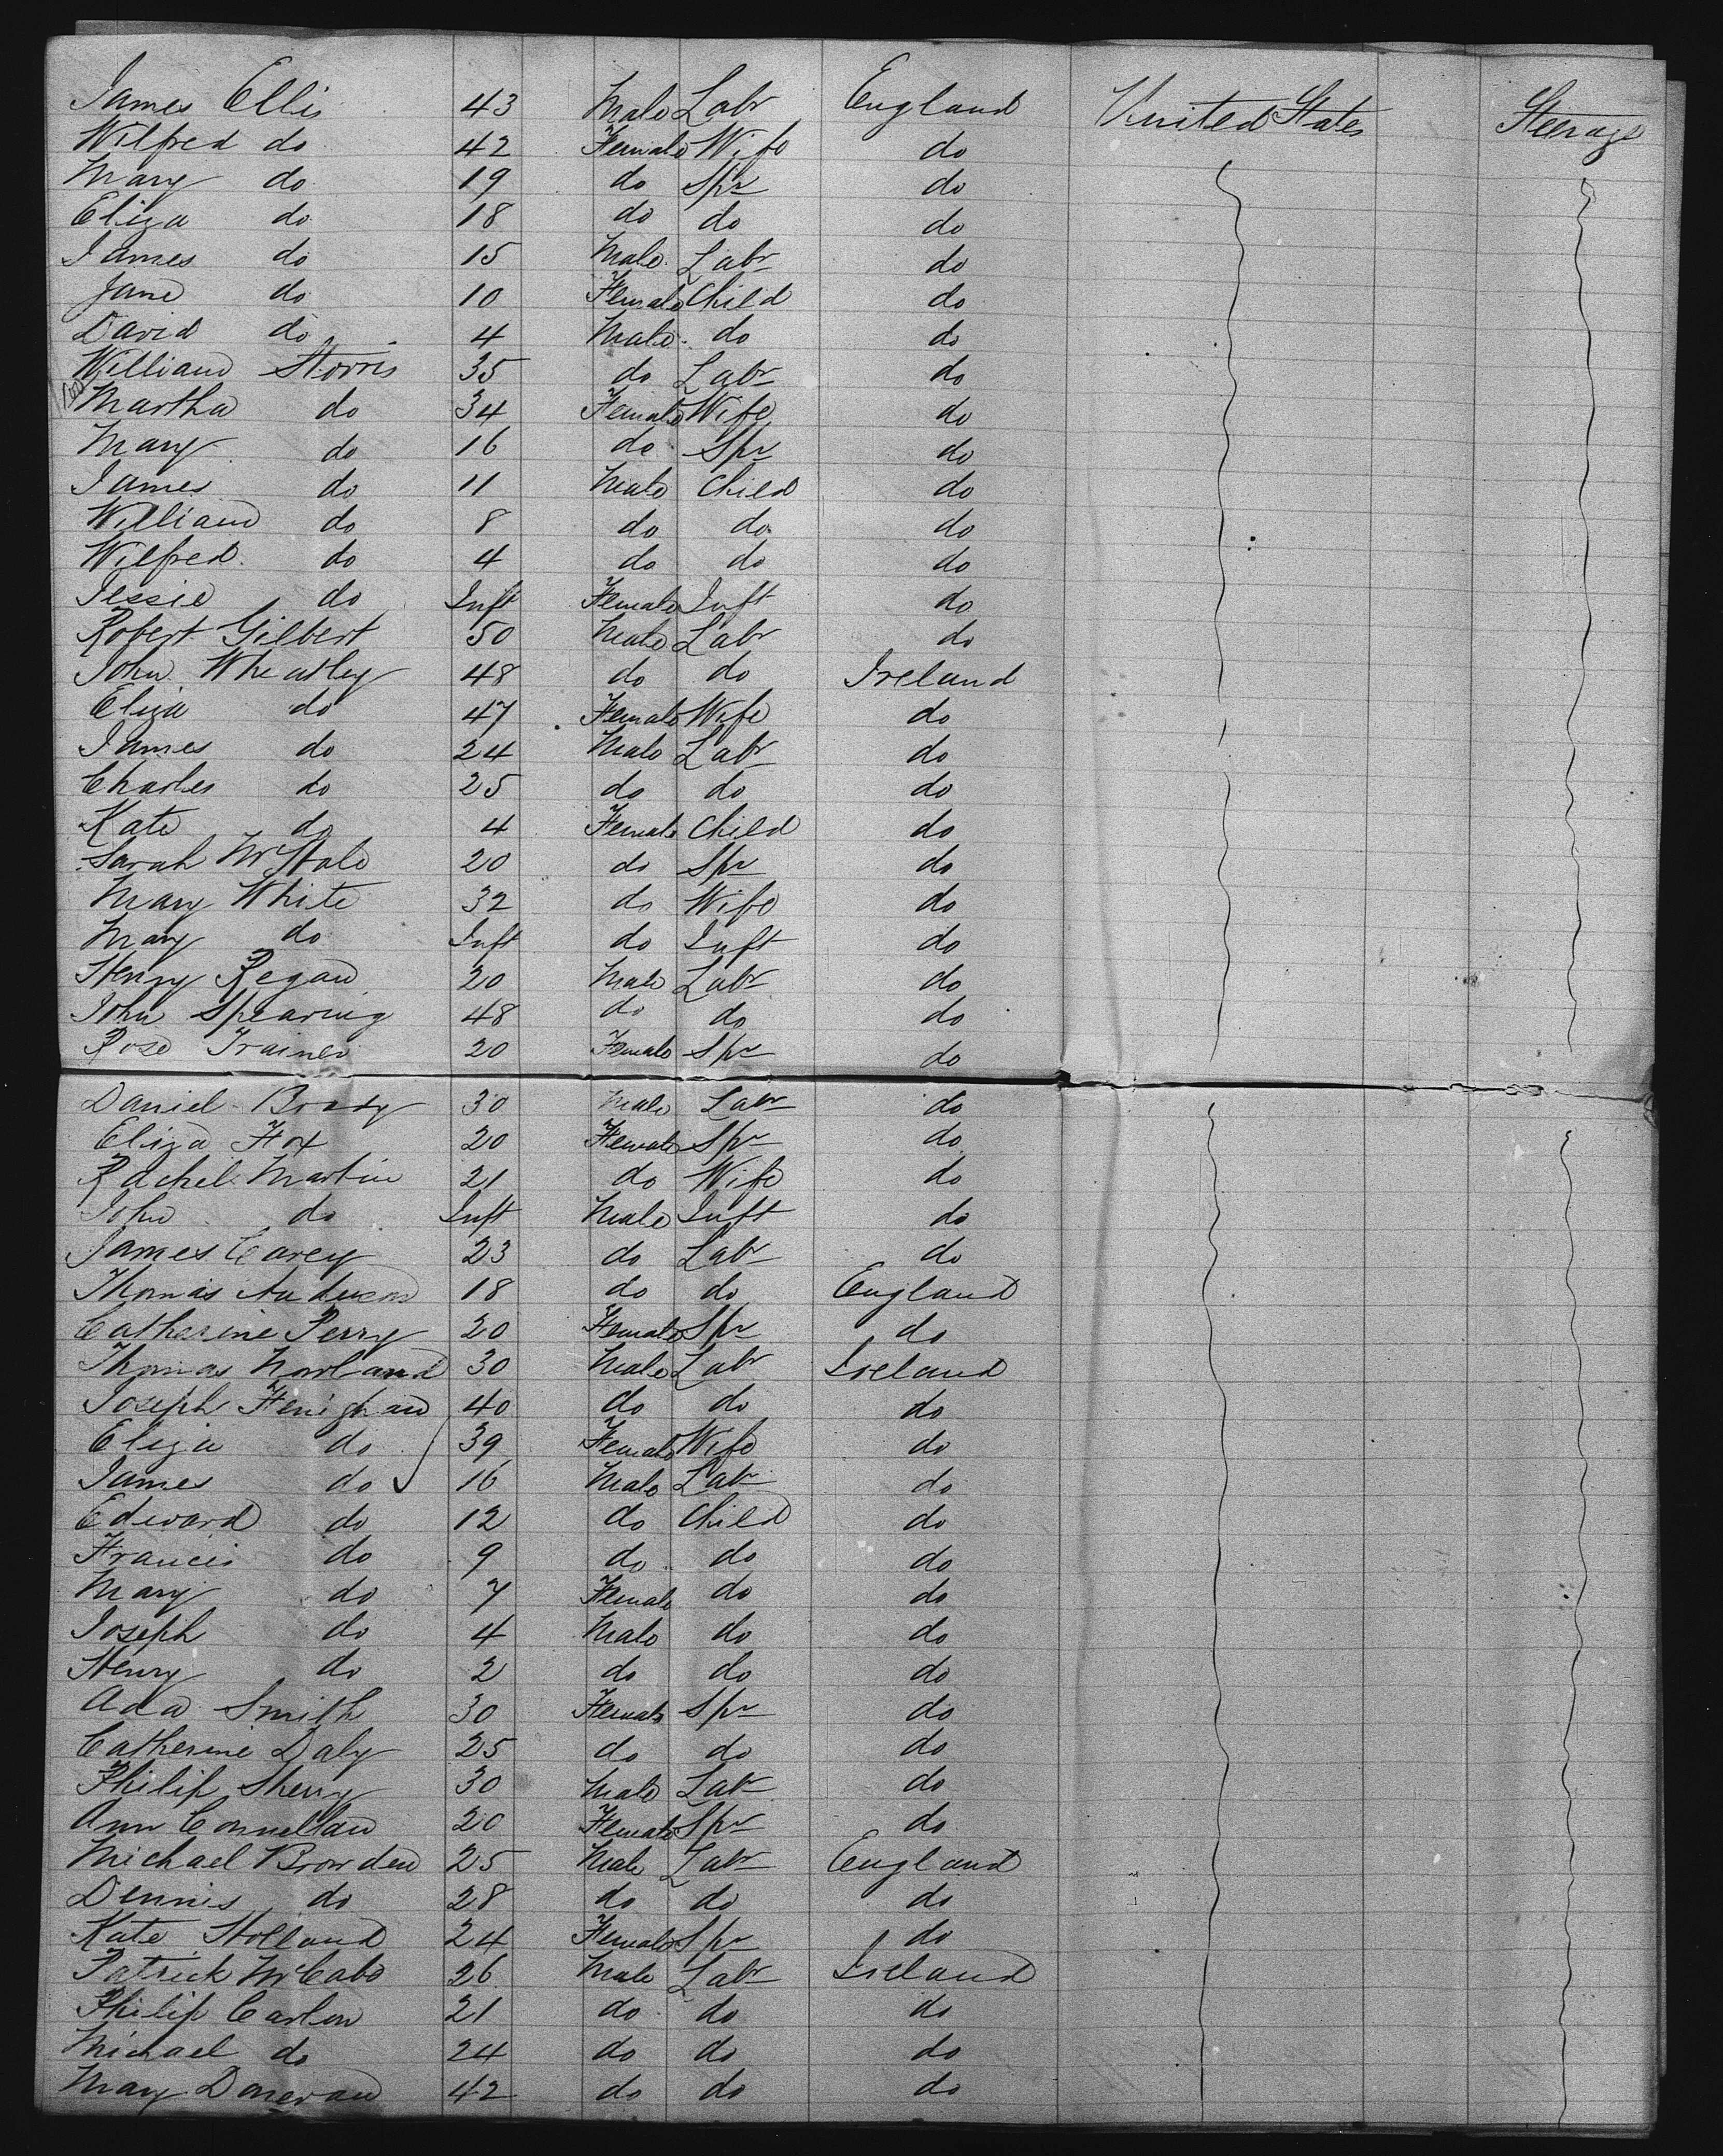 James Ellis 43 Male Labr England United States Steerage
Wilfred do 42 Female Wife do
Mary do 19 do Spr do
Eliza do 18 do do do
James do 15 Male Labr do
Jane do 10 Female Child do
David do 4 Male do do
William Storris 35 do Labr do
Martha do 34 Female Wife do
Mary do 16 do Spr do
James do 11 Male Child do
William do 8 do do do
Wilfred do 4 do do do
Jessie do Inft Female Inft do
Robert Gilbert 50 Male Labr do
John Wheatley 48 do do Ireland
Eliza do 47 Female Wife do
James do 24 Male Labr do
Charles do 25 do do do
Kate do 4 Female Child do
Sarah McHale 20 do Spr do
Mary White 32 do Wife do
Mary do Inft do Inft do
Henry Regan 20 Male Labr do
John Spearing 48 do do do
Rose Trainer 20 Female Spr do
Daniel Brady 30 Male Labr do
Eliza Fox 20 Female Spr do
Rachel Martin 21 do Wife do
John do Inft Male Inft do
James Carey 23 do Labr do
Thomas 18 do do England
Catherine Perry 20 Female Spr do
Thomas Norland 30 Male Labr Ireland
Joseph Fenighan 40 do do do
Eliza do 39 Female Wife do
James do 16 Male Labr do
Edward do 12 do Child do
Francis do 9 do do do
Mary do 7 Female do do
Joseph do 4 Male do do
Henry do 2 do do do
Ada Smith 30 Female Spr do
Catherine Daly 25 do do do
Philip Sherry 30 Male Labr do
Ann Connellan 20 Female Spr do
Michael Browden 25 Male Labr England
Dennis do 28 do do do
Kate Holland 24 Female Spr do
Patrick McCabe 26 Male Labr Ireland
Philip Carlon 21 do do do
Michael do 24 do do do
Mary Donevan 42 do do do